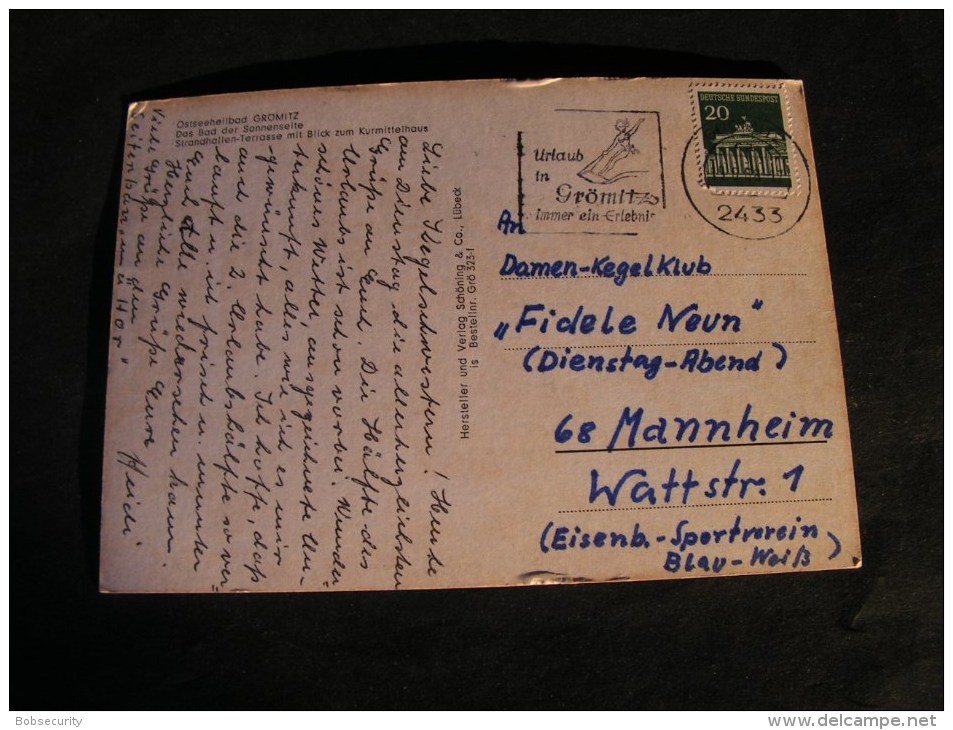 Ostseeheilbad GRÖMITZ
Das Bad der Sonnenseite
Strandhallen-Terrasse mit Blick zum Kurmittelhaus
Liebe Kegelschwestern! Heute
am Dienstag die allerherzlichsten
Grüße an Euch. Die Hälfte des
Urlaubs ist schon vorbei. Wunder
schönes Wetter, ausgezeichnete Un=
terkunft, alles wie ich es mir
gewünscht habe. Ich hoffe, daß
auch die 2. Urlaubshälfte so ver
läuft u. ich frisch u. munter
Euch Alle wiedersehen kann.
Herzliche Grüße Eure Heidi
Viele Grüße an den
"
Hersteller und Verlag Schöning & Co., Lübeck
is Bestellnr. Grö 323-I
Urlaub
in
Grömitz
immer ein Erlebnis
DEUTSCHE BUNDESPOST
20
2433
An
Damen-Kegelklub
„Fidele Neun"
(Dienstag-Abend)
68 Mannheim
Wattstr. 1
(Eisenb.-Sportverein
Blau-Weiß)
Bobsecurity
www.delcampe.net